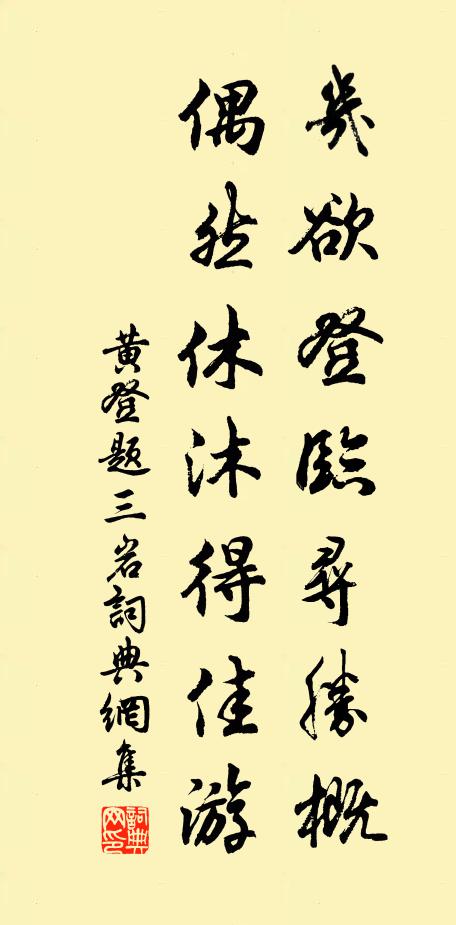 幾欲登臨尋勝概
偶然休沐得佳游
黃登題三岩詞典網集
詞典
网印